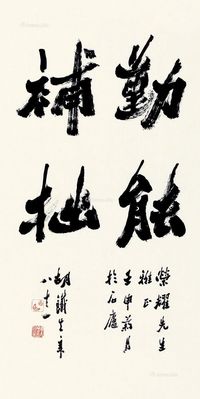 勤能
補拙
榮耀先生
雅正
壬申荷月
於石廬
胡鐵生年
八十一